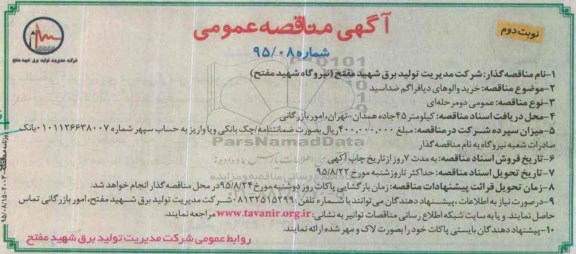 آگهی مناقصه عمومی
نوبت دوم
شماره ۹۵/۰۸
شرکت مدیریت تولید برق شهید مفتح
۱-نام مناقصه گذار: شرکت مدیریت تولید برق شهید مفتح (نیروگاه شهید مفتح)
۲-موضوع مناقصه: خرید والوهای دیافراگم ضداسید
۳-نوع مناقصه: عمومی دومرحله‌ای
۴-محل دریافت اسناد مناقصه: کیلومتر ۴۵ جاده همدان-تهران، امور بازرگانی
۵-میزان سپرده شرکت در مناقصه: مبلغ ۴۰۰,۰۰۰,۰۰۰ ریال بصورت ضمانتنامه/چک بانکی و یا واریز به حساب سپهر شماره ۰۱۰۱۱۲۶۶۳۸۰۰۷ بانک
صادرات شعبه نیروگاه به نام مناقصه گذار
۶-تاریخ فروش اسناد مناقصه: به مدت ۷ روز از تاریخ چاپ آگهی
۷-تاریخ تحویل اسناد مناقصه: حداکثر تا روز شنبه مورخ ۹۵/۸/۲۲
۸-زمان تحویل قرائت پیشنهادات مناقصه: زمان بازگشایی پاکات روز دوشنبه مورخ ۹۵/۸/۲۴ در محل مناقصه گذار انجام خواهد شد.
۹-درصورت نیاز به اطلاعات، پیشنهاد دهندگان می توانند با شماره تلفن: ۰۸۱۳۲۵۱۵۲۹۹ شرکت مدیریت تولید برق شهید مفتح، امور بازرگانی تماس
حاصل نمایند. و یا به سایت شبکه اطلاع رسانی مناقصات توانیر به نشانی: www.tavanir.org.ir مراجعه نمایند.
۱۰-پیشنهاد دهندگان بایستی پاکات خود را بصورت لاک و مهر شده ارائه نمایند.
روابط عمومی شرکت مدیریت تولید برق شهید مفتح
ParsNamadData